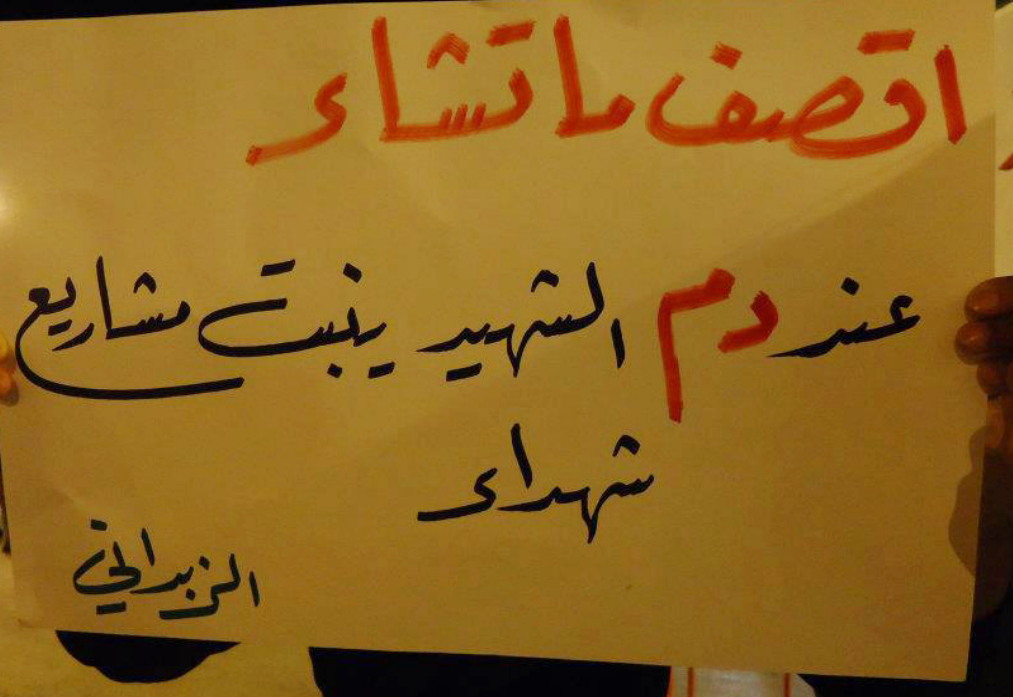 اقصف ما تشاء
عند دم الشهيد ينبت مشاريع
شهداء
الزبداني